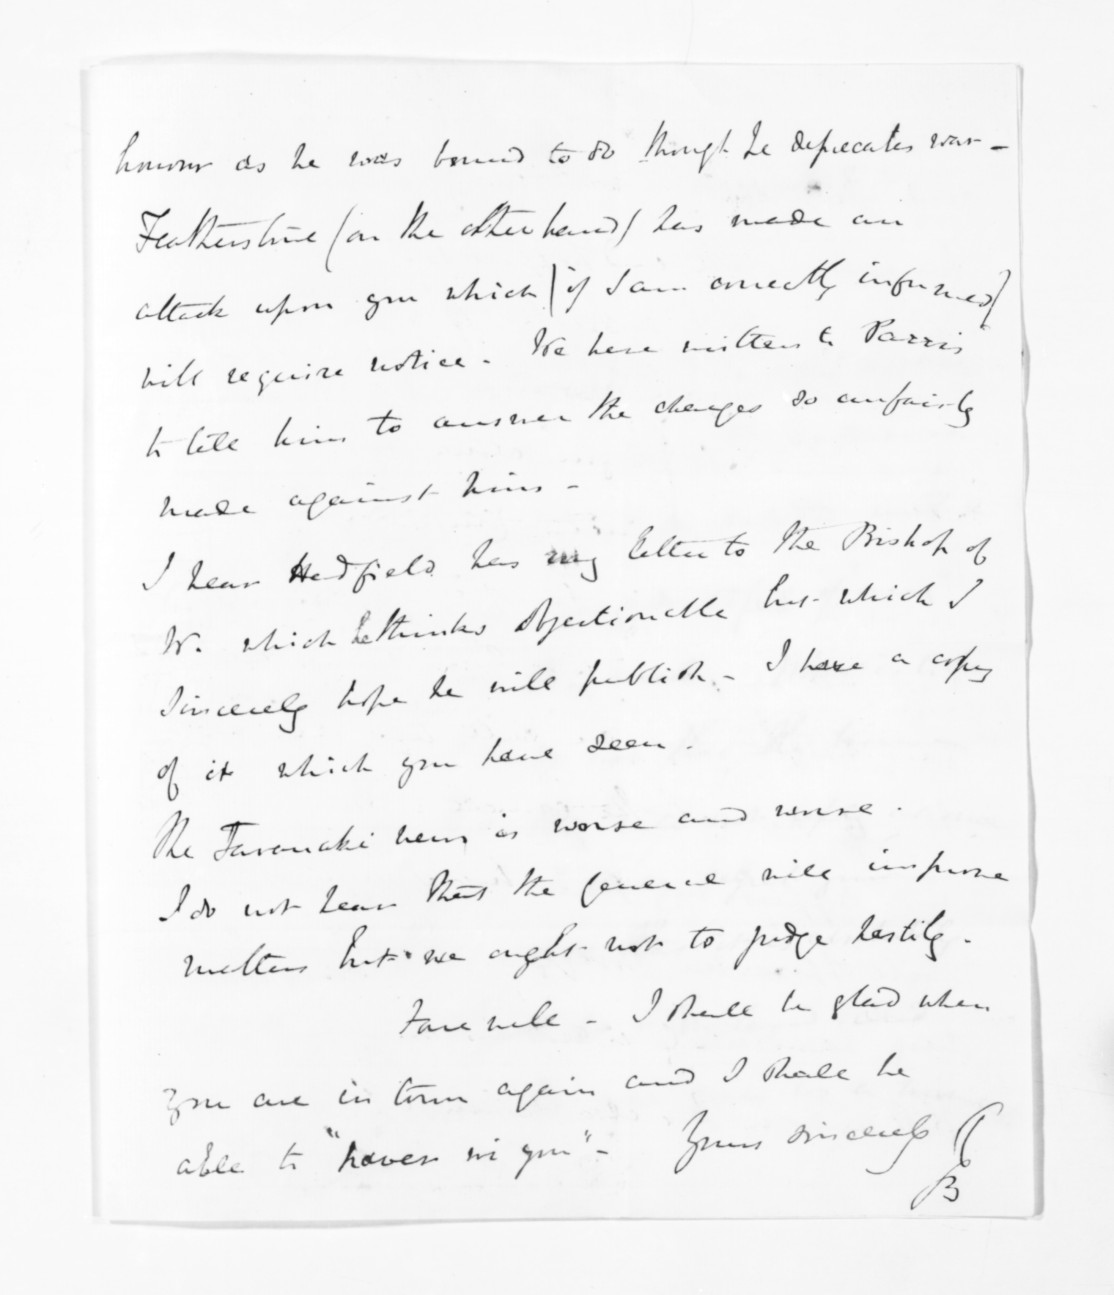 honour as he was bound to do though he deprecates war -
Featherstone (on the other hand) has made an
attack upon you which (if I am correctly informed)
will require notice. We have written to Parris
to tell him to answer the charges so unfairly
made against him -
I hear Hadfield has my letter to the Bishop of
W. which he thinks objectionable but which I
sincerely hope he will publish - I have a copy
of it which you have seen.
The Taranaki news is worse and worse.
I do not hear that the General will improve
matters but we ought not to judge hastily.
Farewell - I shall be glad when
you are in town again and I shall be
able to "haver wi you" - Yours sincerely
B